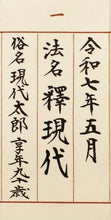 一
令和七年五月
法名 釋現代
俗名 現代太郎 享年九一歳